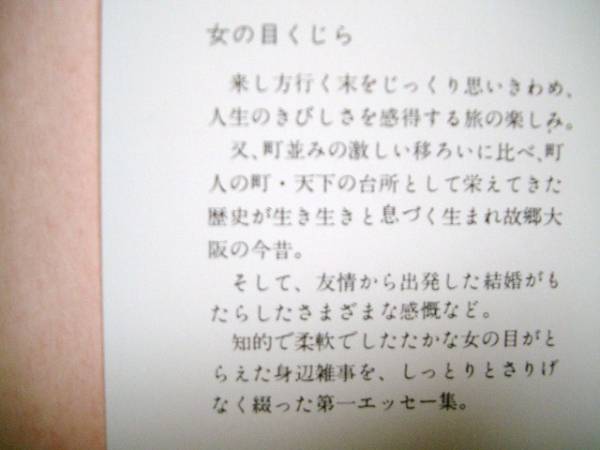 女の目くじら
来し方行く末をじっくり思いきわめ、
人生のきびしさを感得する旅の楽しみ。
又、町並みの激しい移ろいに比べ、町
人の町・天下の台所として栄えてきた
歴史が生き生きと息づく生まれ故郷大
阪の今昔。
そして、友情から出発した結婚がも
たらしたさまざまな感慨など。
知的で柔軟でしたたかな女の目がと
らえた身辺雑事を、しっとりとさりげ
なく綴った第一エッセー集。